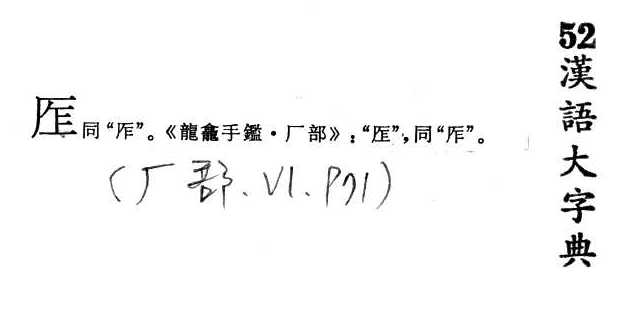 52漢語大字典
同“厏”。《龍龕手鑑·厂部》：“”，同“厏”。
(厂部. V1. P71)